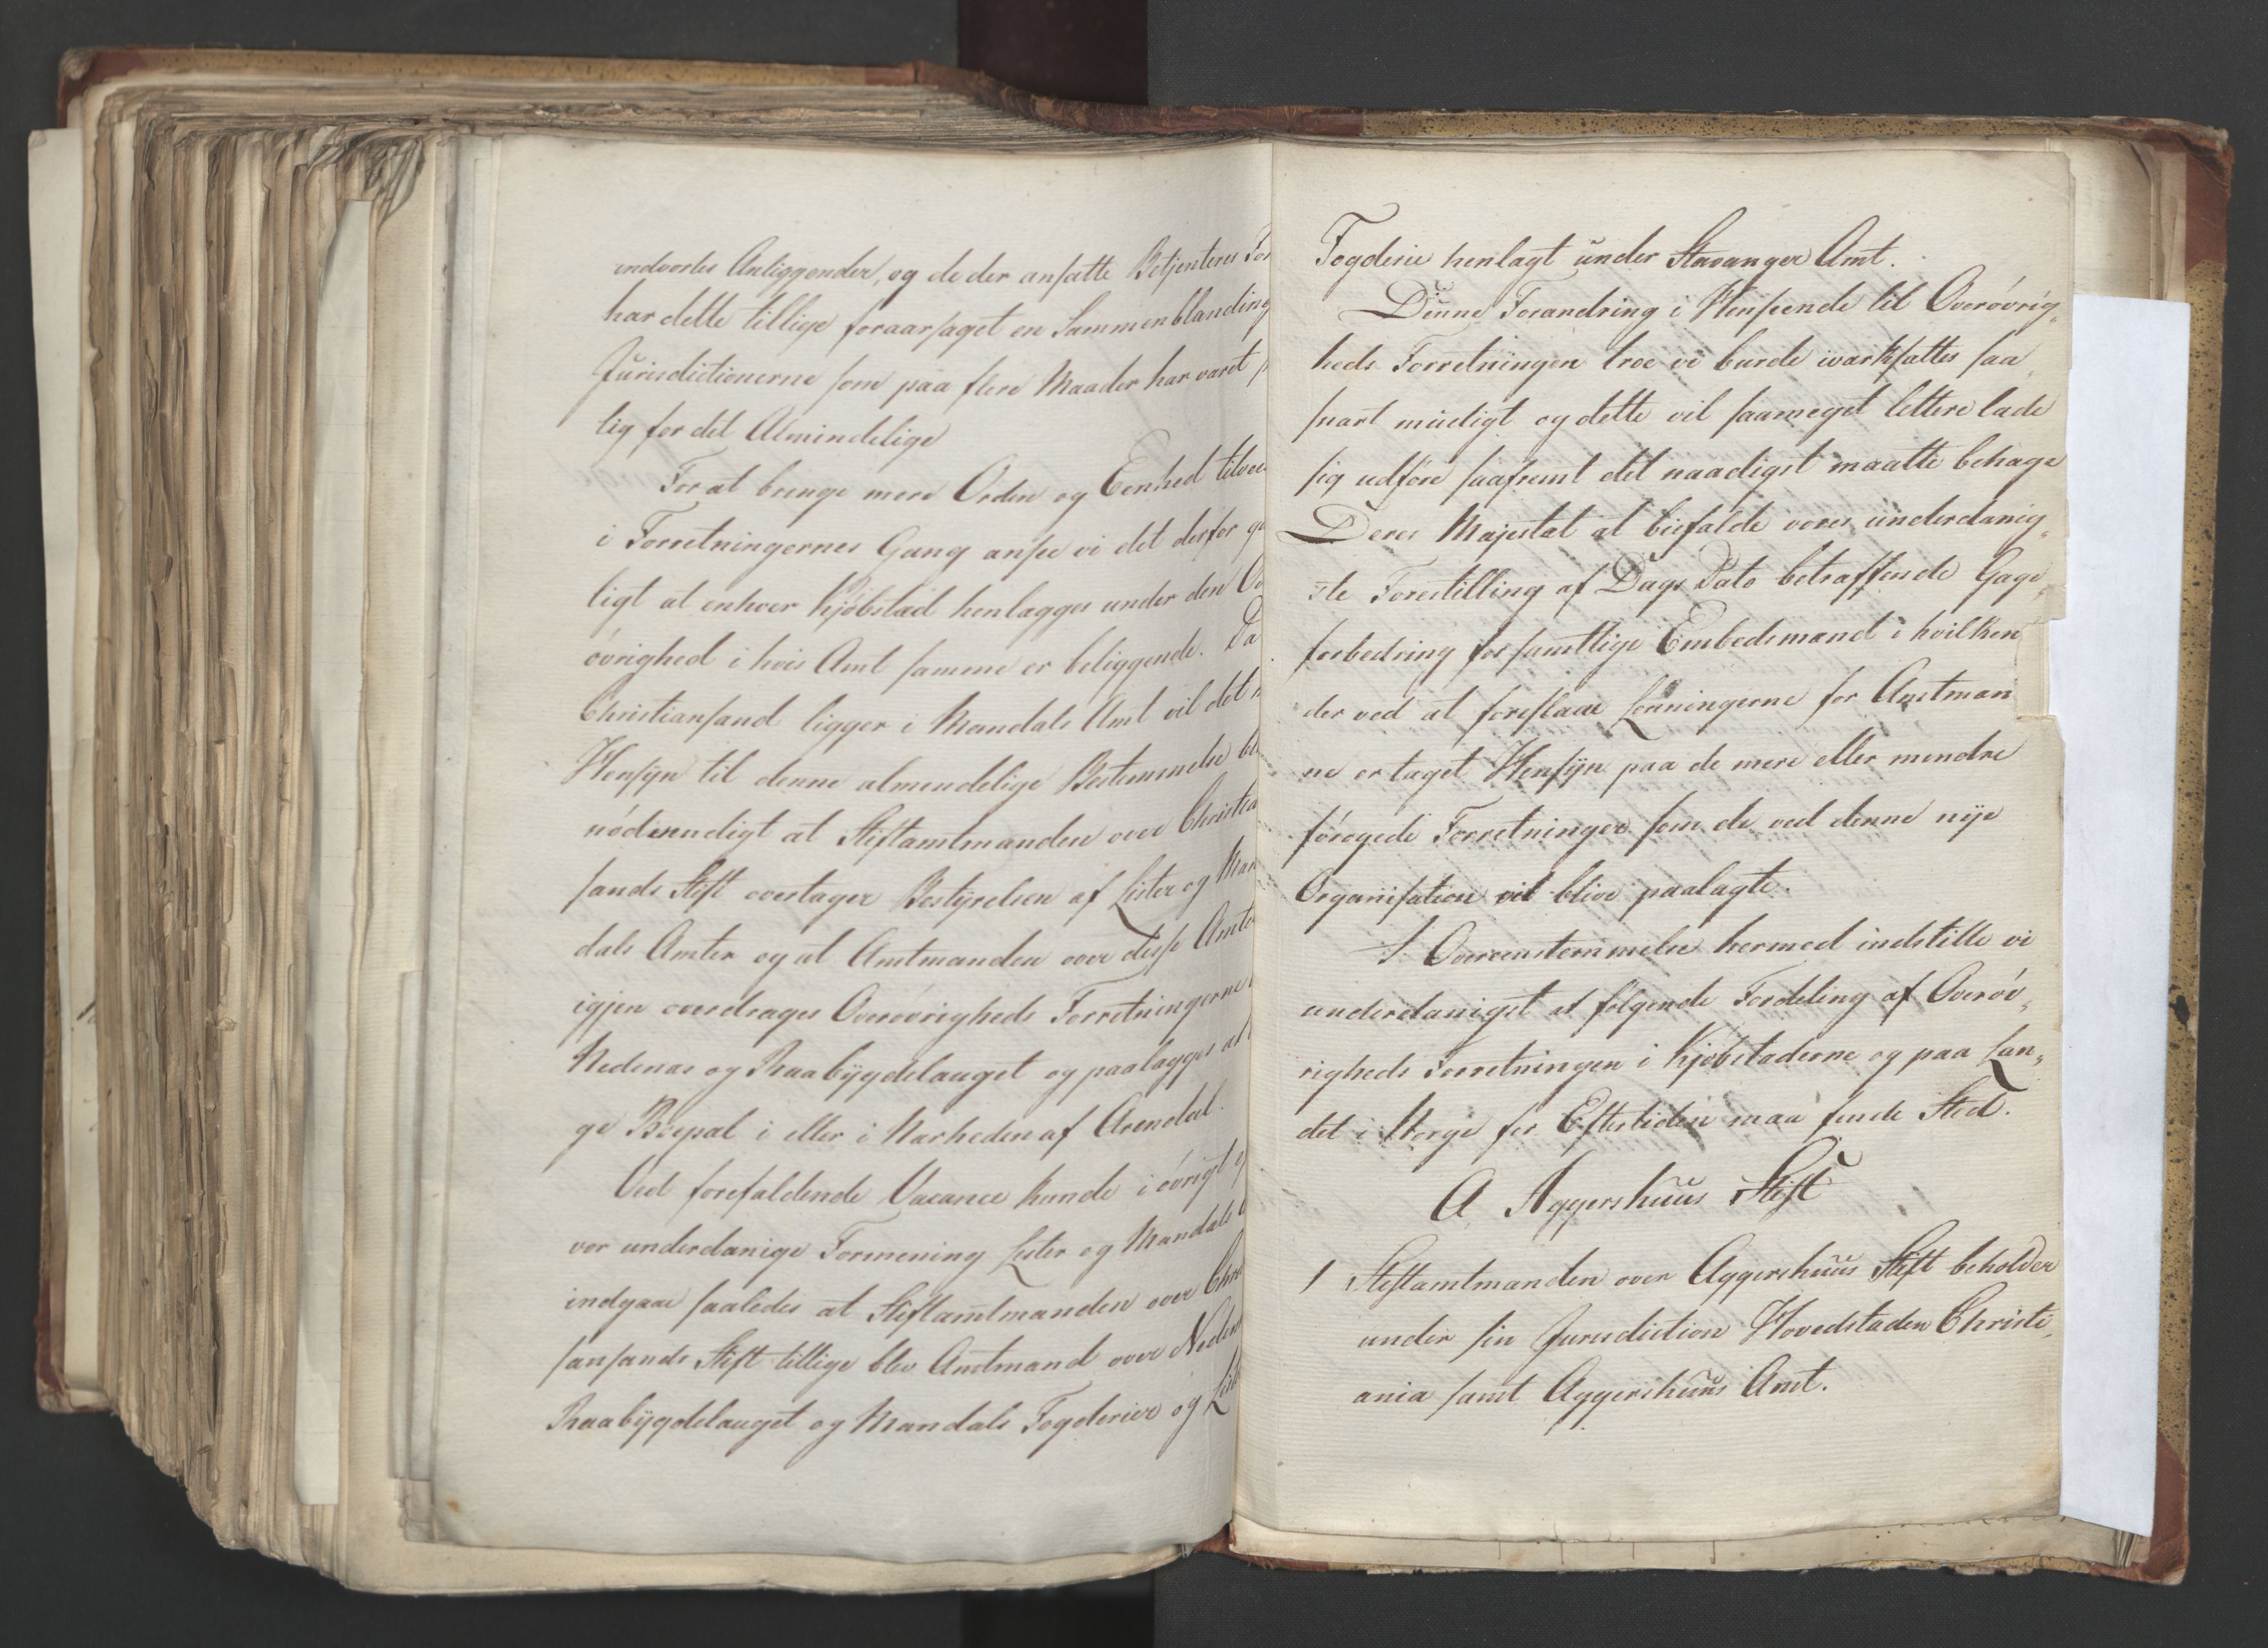 indvortes Anliggender, og de der ansatte Betjenteres For
har dette tillige foraarsaget en Sammenblanding
Jurisdictionerne som paa flere Maader har været
lig for det Almindelige
For at bringe mere Orden og Eenhed tilvee
i Forretningernes Gang ansee vi det derfor
ligt at enhver Kjøbstad henlægges under den Ov
øvrighed i hvis Amt samme er beliggende. Da
Christiansand ligger i Mandals Amt vil det
Hensÿn til denne almindelige Bestemmelse bli
nødvendigt at Stiftamtmanden over Christia
sands Stift overtager Bestÿrelsen af Lister og Man
dals Amter og at Amtmanden over disse Amter
igjen overdrages Overøvrigheds Forretningerne
Nedenæs og Raabÿgdelauget og paalægges at
ge Bopæl i eller i Nærheden af Arendal.
Ved forefaldende Vacance kunde i øvrigt
vor underdanige Formening Lister og Mandals
indgaae saaledes at Stiftamtmanden over Chri
sansands Stift tillige blev Amtmand over Neden
Raabÿgdelauget og Mandals Fogderier og List
Fogderie henlagt under Stavanger Amt.
Denne Forandring i Henseende til Overøvrig„
heds Forretningen troe vi burde iværksættes saa
snart mueligt og dette vil saameget lettere lade
sig udføre saafremt det naadigst maatte behage
Deres Majestæt at biefalde vores underdanig„
ste Forestilling af Dags Dato betræffende Gage„
forbedring for samtlige Embedsmænd i hvilken
der ved at foreslaae Lønningerne for Amtmæn
ne er taget Hensÿn paa de mere eller mindre
forøgede Forretninger som de ved denne nÿe
Organisation vil blive paalagte.
I Overeensstemmelse hermed indstille vi
underdanigst at følgende Fordeling af Overøv„
righeds Forretningen i Kjøbstæderne og paa Lan„
det i Norge for Eftertiden maa finde Sted.
A Aggershuus Stift
1 Stiftamtmanden over Aggershuus Stift beholder
under sin Jurisdiction Hovedstaden Christi„
ania samt Aggershuus Amt.